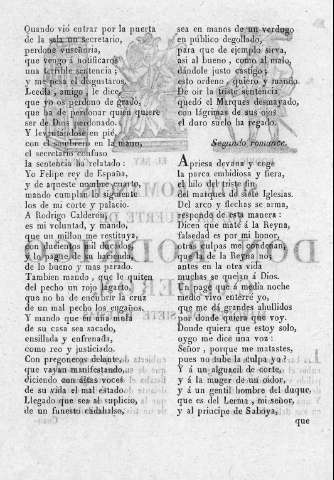 Quando vió entrar por la puerta
de la sala un secretario,
perdone vuseñoría,
que vengo á notificaros
una terrible sentencia;
y me pesa el disgustaros.
Leedla, amigo, le dice,
que yo os perdono de grado,
que ha de perdonar quien quiere
ser de Dios perdonado.
Y levantándose en pie,
con el sombrero en la mano,
el secretario confuso
la sentencia ha relatado:
Yo Felipe rey de España,
y de aqueste nombre quarto,
mando cumplan lo siguiente
los de mi corte y palacio.
A Rodrigo Calderon,
es mi voluntad, y mando,
que un millon me restituya,
y lo pague
de lo bueno y mas parado.
Tambien mando, que le quiten
del pecho un rojo lagarto,
que no ha de encubrir la cruz
de un mal pecho los engaños.
Y mando que en una mula
de su casa sea sacado,
ensillada y enfrenada,
como reo y justiciado.
Con pregoneros delante,
que vayan manifestando,
diciendo con altas voces
de su vida el mal estado.
Llegado que sea al suplicio,
de un funesto cadahalso,
sea en manos de un verdugo
en público degollado,
para que de ejemplo sirva,
asi al bueno, como al malo,
dándole justo castigo;
esto ordeno, quiero y mando.
De oir la triste sentencia
quedó el Marques desmayado,
con lágrimas de sus ojos
el duro suelo ha regado.
Segundo romance.
Apriesa devana y coge
la parca embidiosa y fiera,
el hilo del triste fin
del marques de siete Iglesias.
Del arco y flechas se arma,
responde de esta manera:
Dicen que maté á la Reyna,
falsedad es por mi honor,
mis culpas me condenan,
que la de la Reyna no;
antes en la otra vida
muchas se quejan á Dios.
Un page que á media noche
medio vivo enterré yo,
que me dá grandes ahullidos
por donde quiera que voy.
Donde quiera que estoy solo,
oygo me dice una voz:
Señor, porque me matastes,
pues no tube la culpa yo?
Y á un alguacil de corte,
y á la muger de un oidor,
y á un gentil hombre del duque,
que es del Lerma, mi señor,
y al principe de Saboya,
que